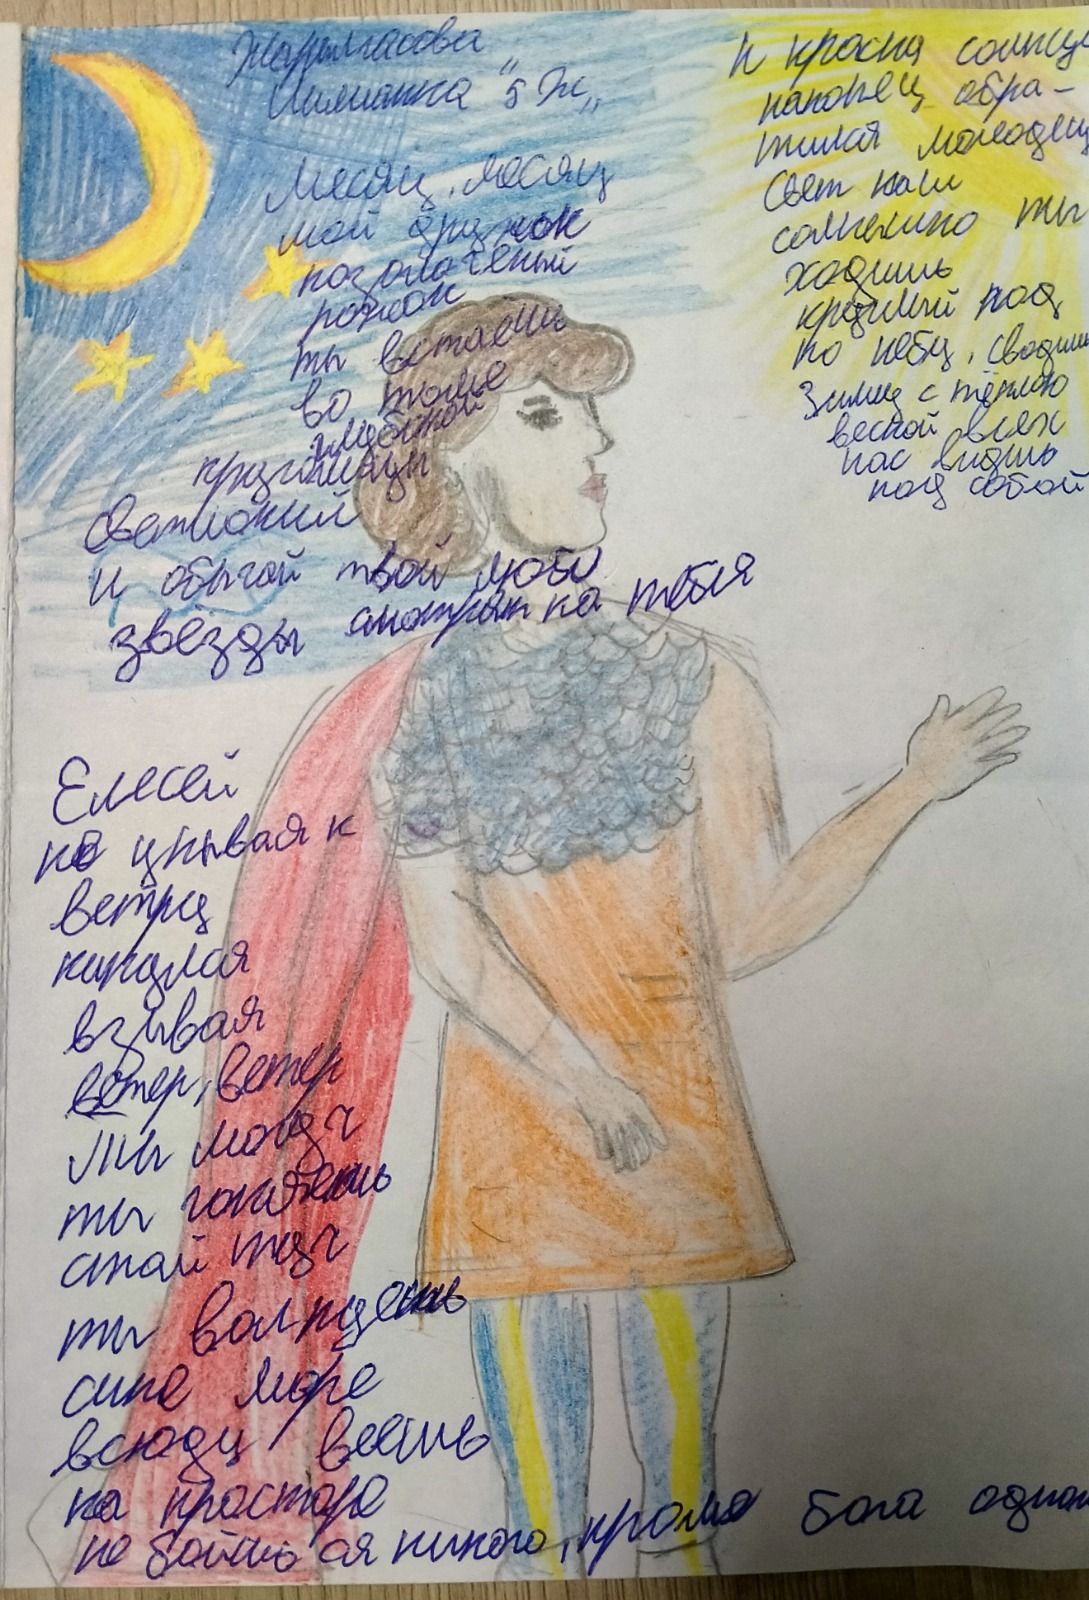 Жарылгасова
"5 Ж"
Месяц, месяц
мой дружок
позолоченый
рожок
ты встаёшь
во тьме
глубокой
круголицый
светлокий
И обычай твой любя
звёзды смотрят на тебя
К красну солнцу
наконец обра-
тился молодец
Свет наш
солнышко ты
ходишь
круглый год
по небу, сводишь
Зиму с тёплою
весной всех
нас видишь
под собой
Елесей
не унывая к
ветру
кинулся
взывая
ветер, ветер
Ты могуч
ты гоняешь
стаи туч
ты волнуешь
сине море
всюду веешь
на просторе
не боишься никого, кроме бога одного